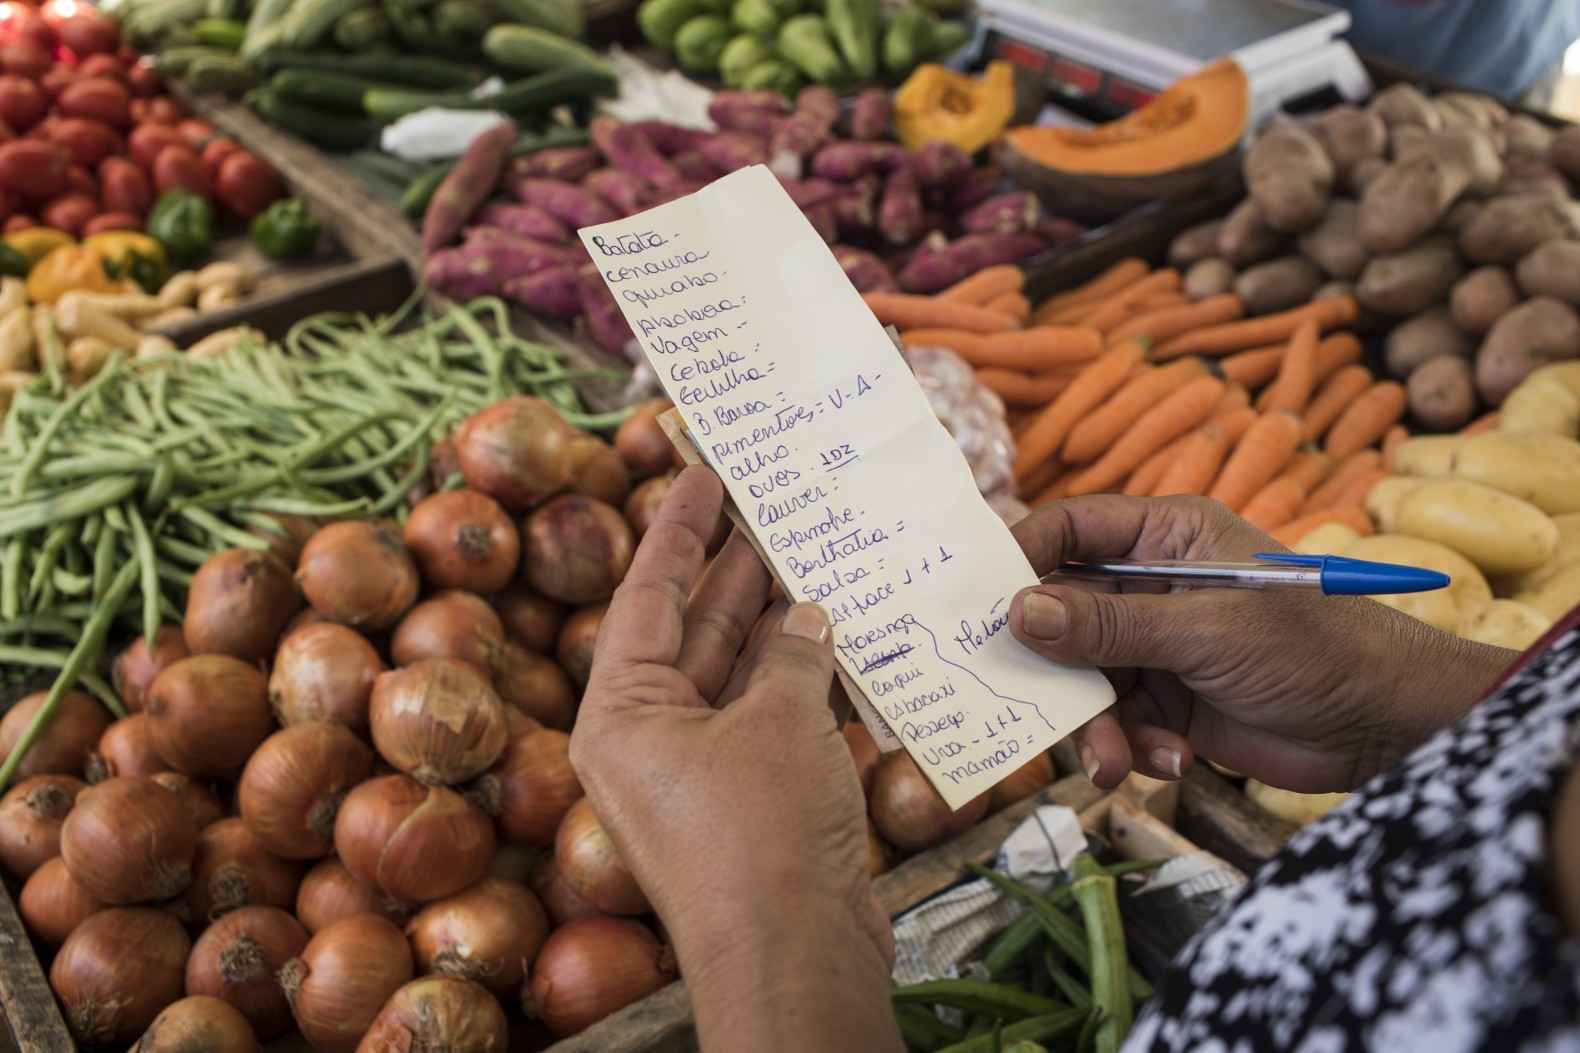 Batata -
cenoura
quiabo -
Abobora:
Vagem -
Cebola :
Ervilha =
B. Baroa =
pimentões = V - A -
alho.
ovos. 1DZ
Couver =
Espinafre.
Berthalia =
Salsa =
Alface 1 + 1
Moranga
Caqui
Abacaxi
Pessego.
Uva - 1+1
mamão =
Melão